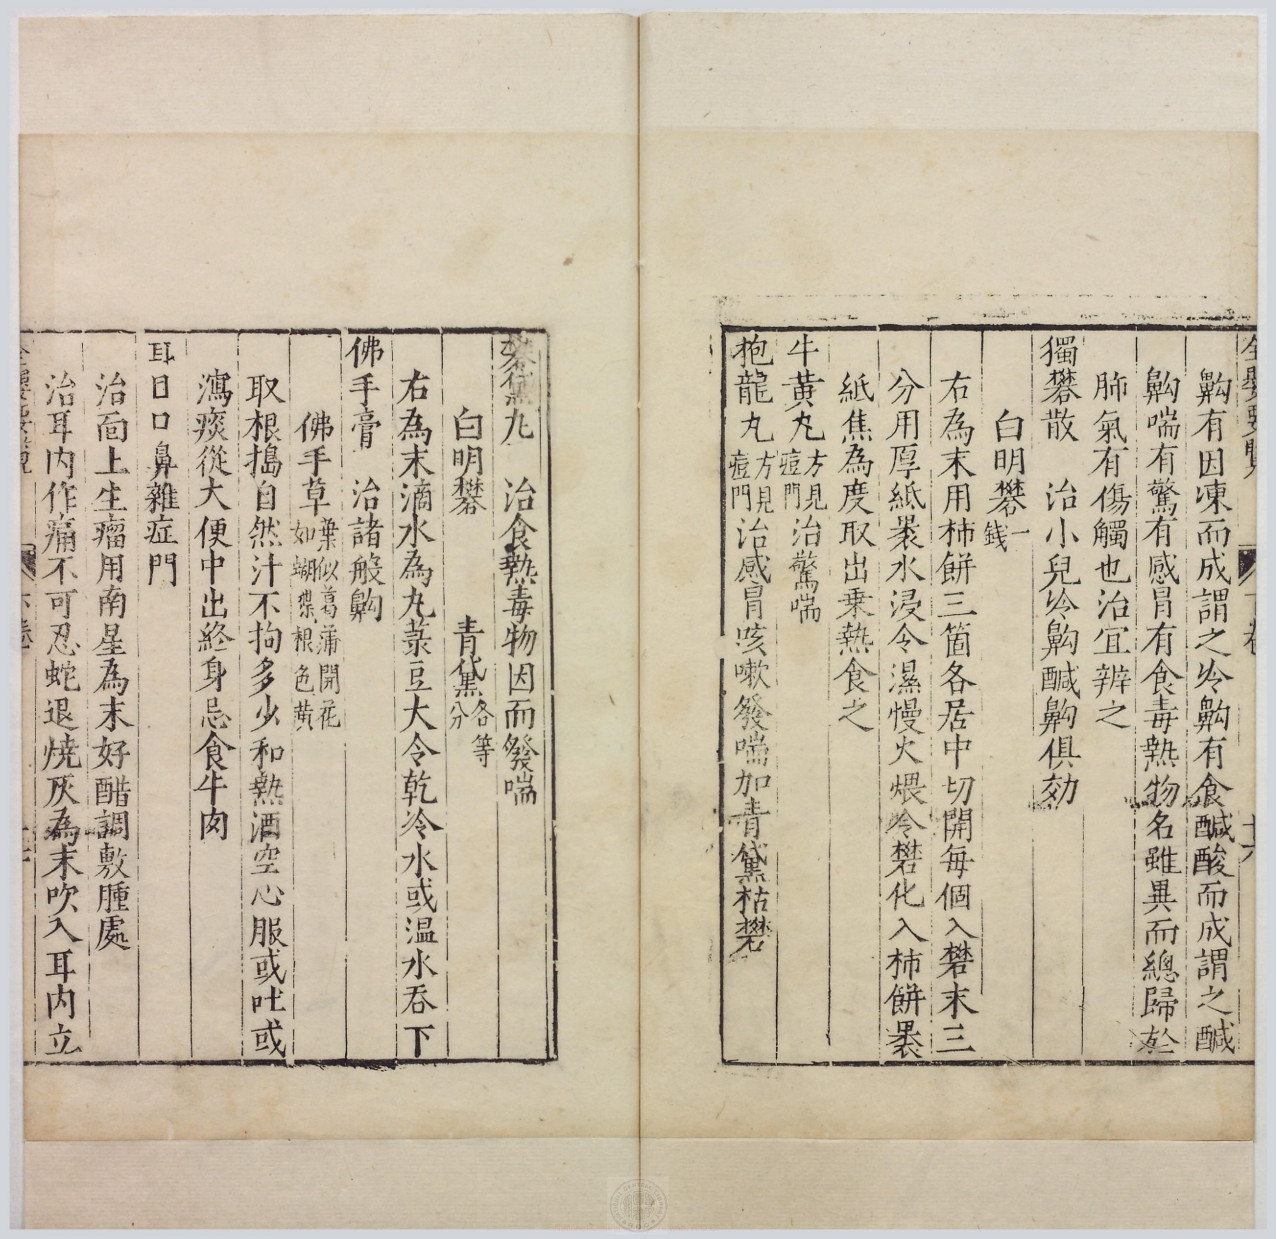 齁有因凍而成謂之冷齁有食醎酸而成謂之醎
齁喘有驚有感冒有食毒熱物名雖異而總歸於
肺氣有傷觸也治宜辨之
獨礬散　治小兒冷齁醎齁俱効
白明礬一錢
右為末用柿餅三箇各居中切開每個入礬末三
分用厚紙褁水浸令濕慢火煨令礬化入柿餅褁
紙焦為度取出乗熱食之
牛黄丸方見痘門治驚喘
抱龍丸方見痘門治感冒咳嗽發喘加青黛枯礬
礬黛丸　治食熱毒物因而發喘
白明礬　青黛各等分
右為末滴水為丸菉豆大令乾冷水或温水吞下
佛手膏　治諸般齁
佛手草葉似葛蒲開花如蝴蝶根色黄
取根搗自然汁不拘多少和熱酒空心服或吐或
瀉痰從大便中出終身忌食牛肉
耳目口鼻雜症門
治面上生瘤用南星為末好醋調敷腫處
治耳内作痛不可忍蛇退燒灰為末吹入耳内立